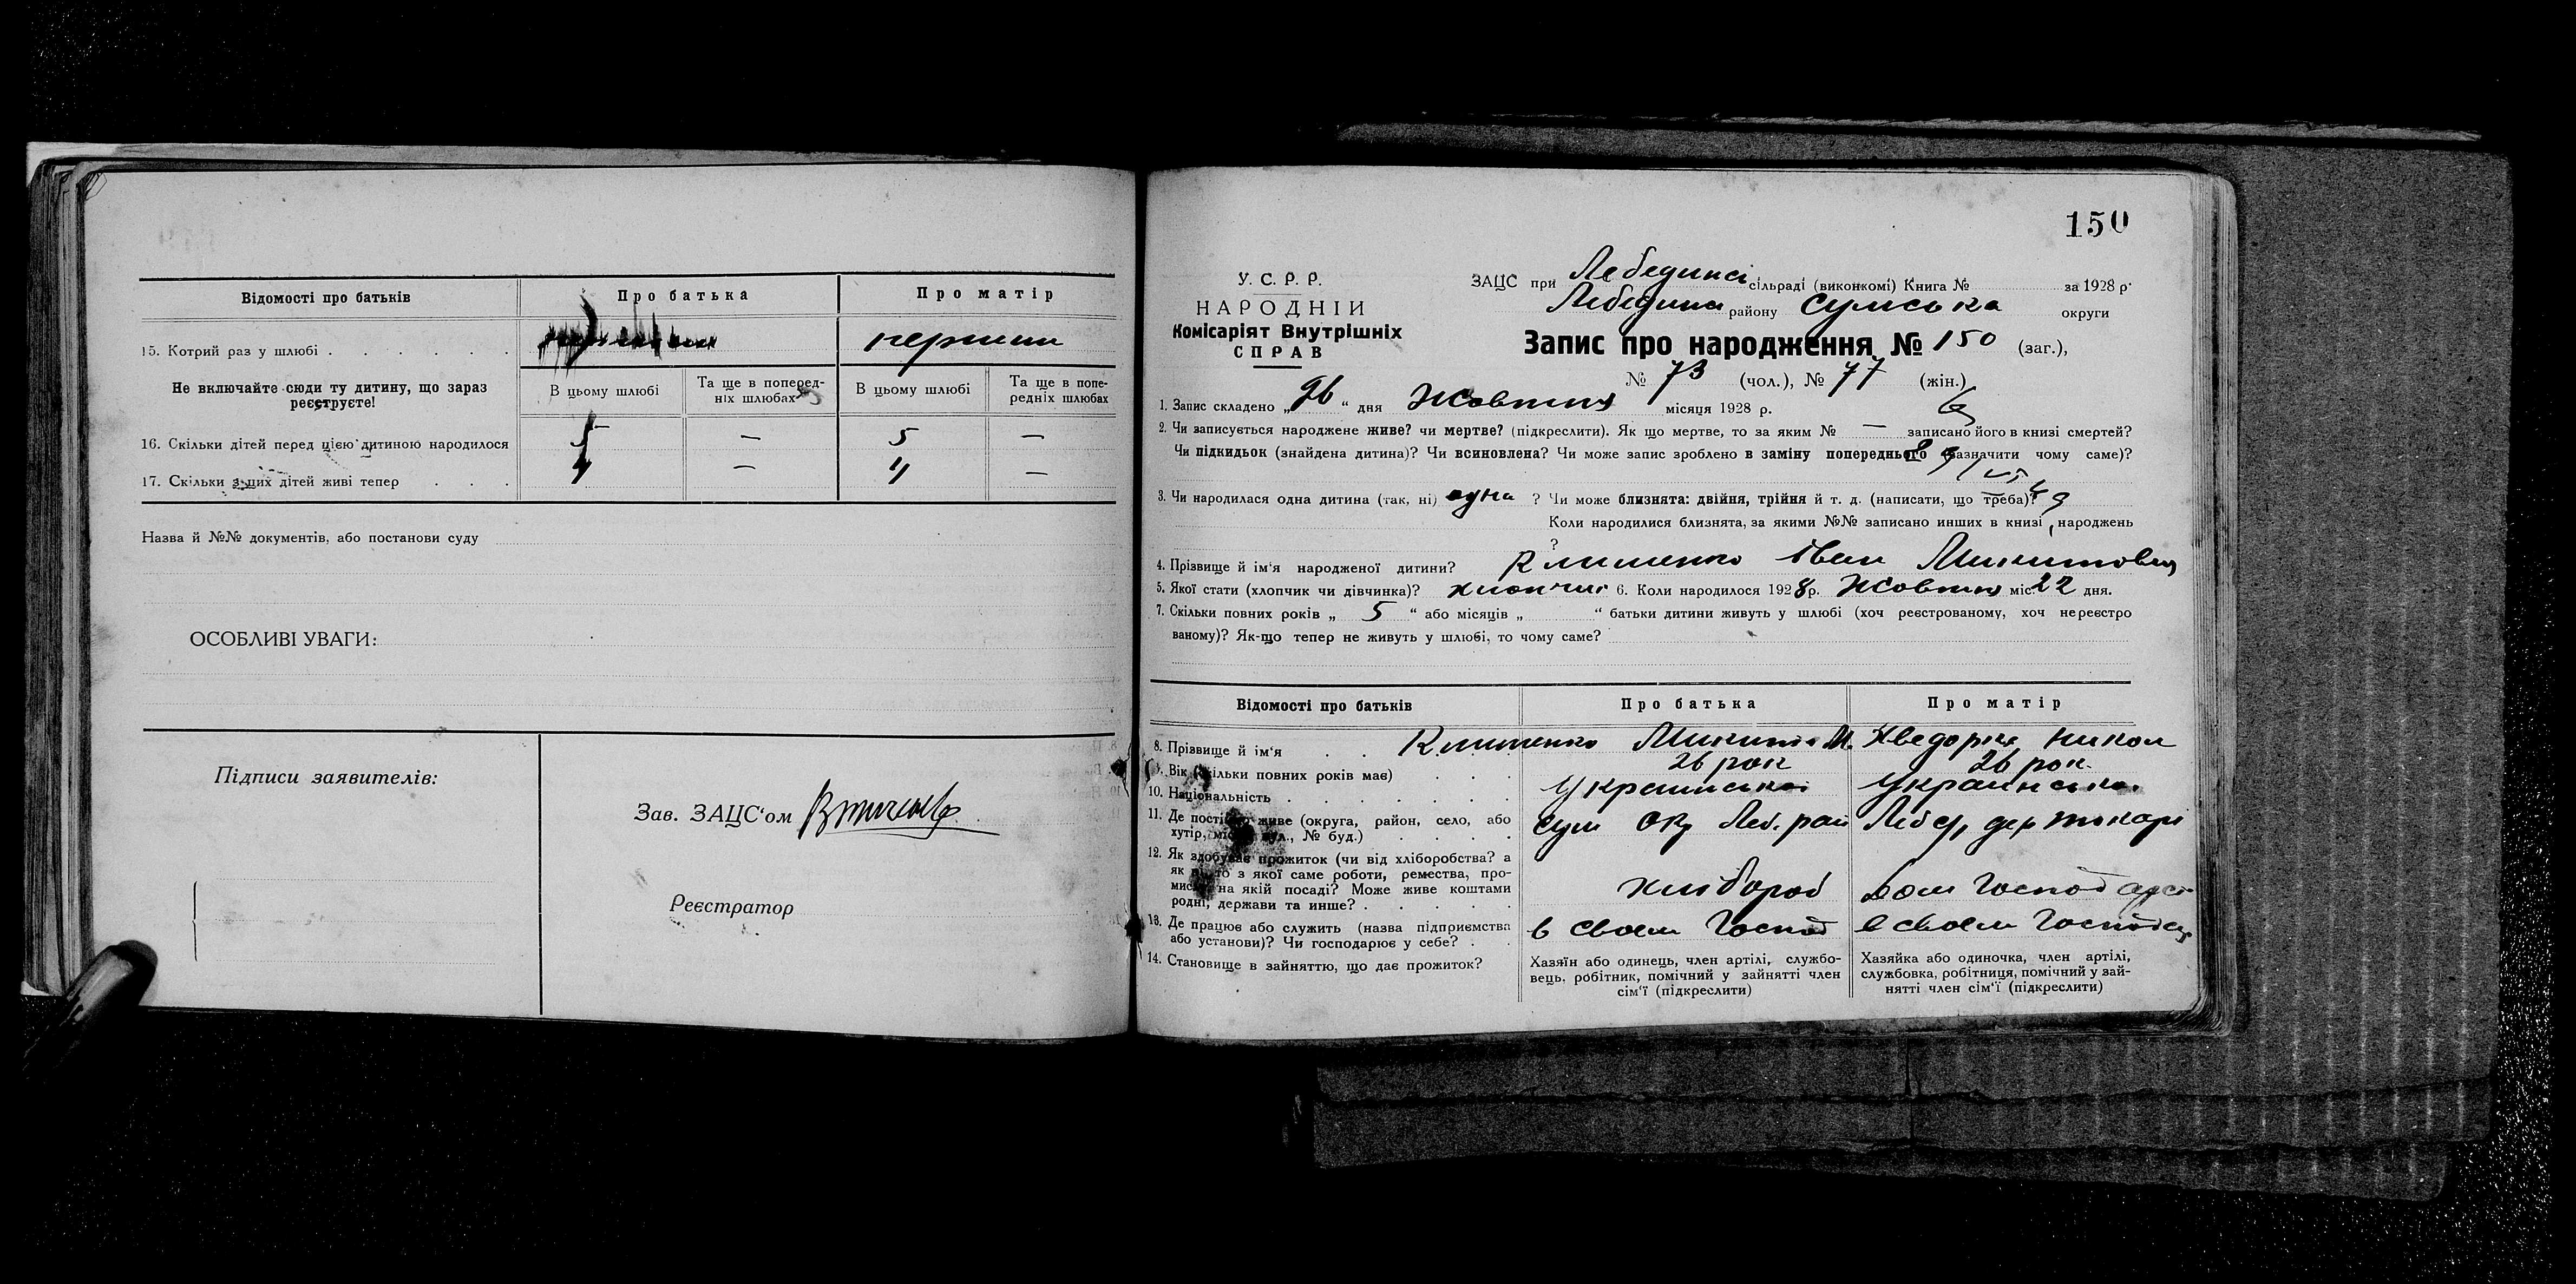 Відомості про батьків
Про батька
Про матір
15. Котрий раз у шлюбі . . . . . .
перший
Не включайте сюди ту дитину, що зараз
реєструєте!
В цьому шлюбі
Та ще в поперед-
ніх шлюбах
В цьому шлюбі
Та ще в попе-
редніх шлюбах
16. Скільки дітей перед цією дитиною народилося
5 — 5 —
17. Скільки з цих дітей живі тепер . . .
4 — 4 —
Назва й №№ документів, або постанови суду
ОСОБЛИВІ УВАГИ:
Підписи заявителів:
Зав. ЗАЦС'ом
Реєстратор
150
У. С. Р. Р.
НАРОДНІЙ
Комісаріят Внутрішніх
СПРАВ
ЗАЦС при Лебединсі сільраді (виконкомі) Книга № за 1928 р.
Лебедина району Сумська округи
Запис про народження № 150 (заг.),
№ 73 (чол.), № 77 (жін.)
1. Запис складено „26“ дня Жовтня місяця 1928 р.
2. Чи записується народжене живе? чи мертве? (підкреслити). Як що мертве, то за яким № — записано його в книзі смертей?
Чи підкидьок (знайдена дитина)? Чи всиновлена? Чи може запис зроблено в заміну попереднього (зазначити чому саме)?
3. Чи народилася одна дитина (так, ні) одна ? Чи може близнята: двійня, трійня й т. д. (написати, що треба)?
Коли народилися близнята, за якими №№ записано инших в книзі народжень
?
4. Прізвище й ім'я народженої дитини? Клименко Іван Микитович
5. Якої стати (хлопчик чи дівчинка)? хлопчик 6. Коли народилося 1928 р. Жовтня міс. 22 дня.
7. Скільки повних років „ 5 “ або місяців „ “ батьки дитини живуть у шлюбі (хоч реєстрованому, хоч нереєстро
ваному)? Як-що тепер не живуть у шлюбі, то чому саме?
Відомості про батьків
Про батька
Про матір
8. Прізвище й ім'я . . Клименко Микита М. Хведорка Никол
9. Вік (скільки повних років має) . . . 26 рок 26 рок.
10. Національність . . . . . . . Українська Українська.
11. Де постійно живе (округа, район, село, або
хутір, місто, вул., № буд.) . . . .
Сум Окр Леб. рай Леб
12. Як здобуває прожиток (чи від хліборобства? а
як ні, то з якої саме роботи, ремества, про-
мислу, на якій посаді? Може живе коштами
родні, держави та инше? . . . . .
хлібороб дом Господарст
13. Де працює або служить (назва підприємства
або установи)? Чи господарює у себе? . .
в своем Господ в своем Господар
14. Становище в зайняттю, що дає прожиток?
Хазяїн або одинець, член артілі, службо-
вець, робітник, помічний у зайнятті член
сім'ї (підкреслити)
Хазяйка або одиночка, член артілі,
службовка, робітниця, помічний у зай-
нятті член сім'ї (підкреслити)